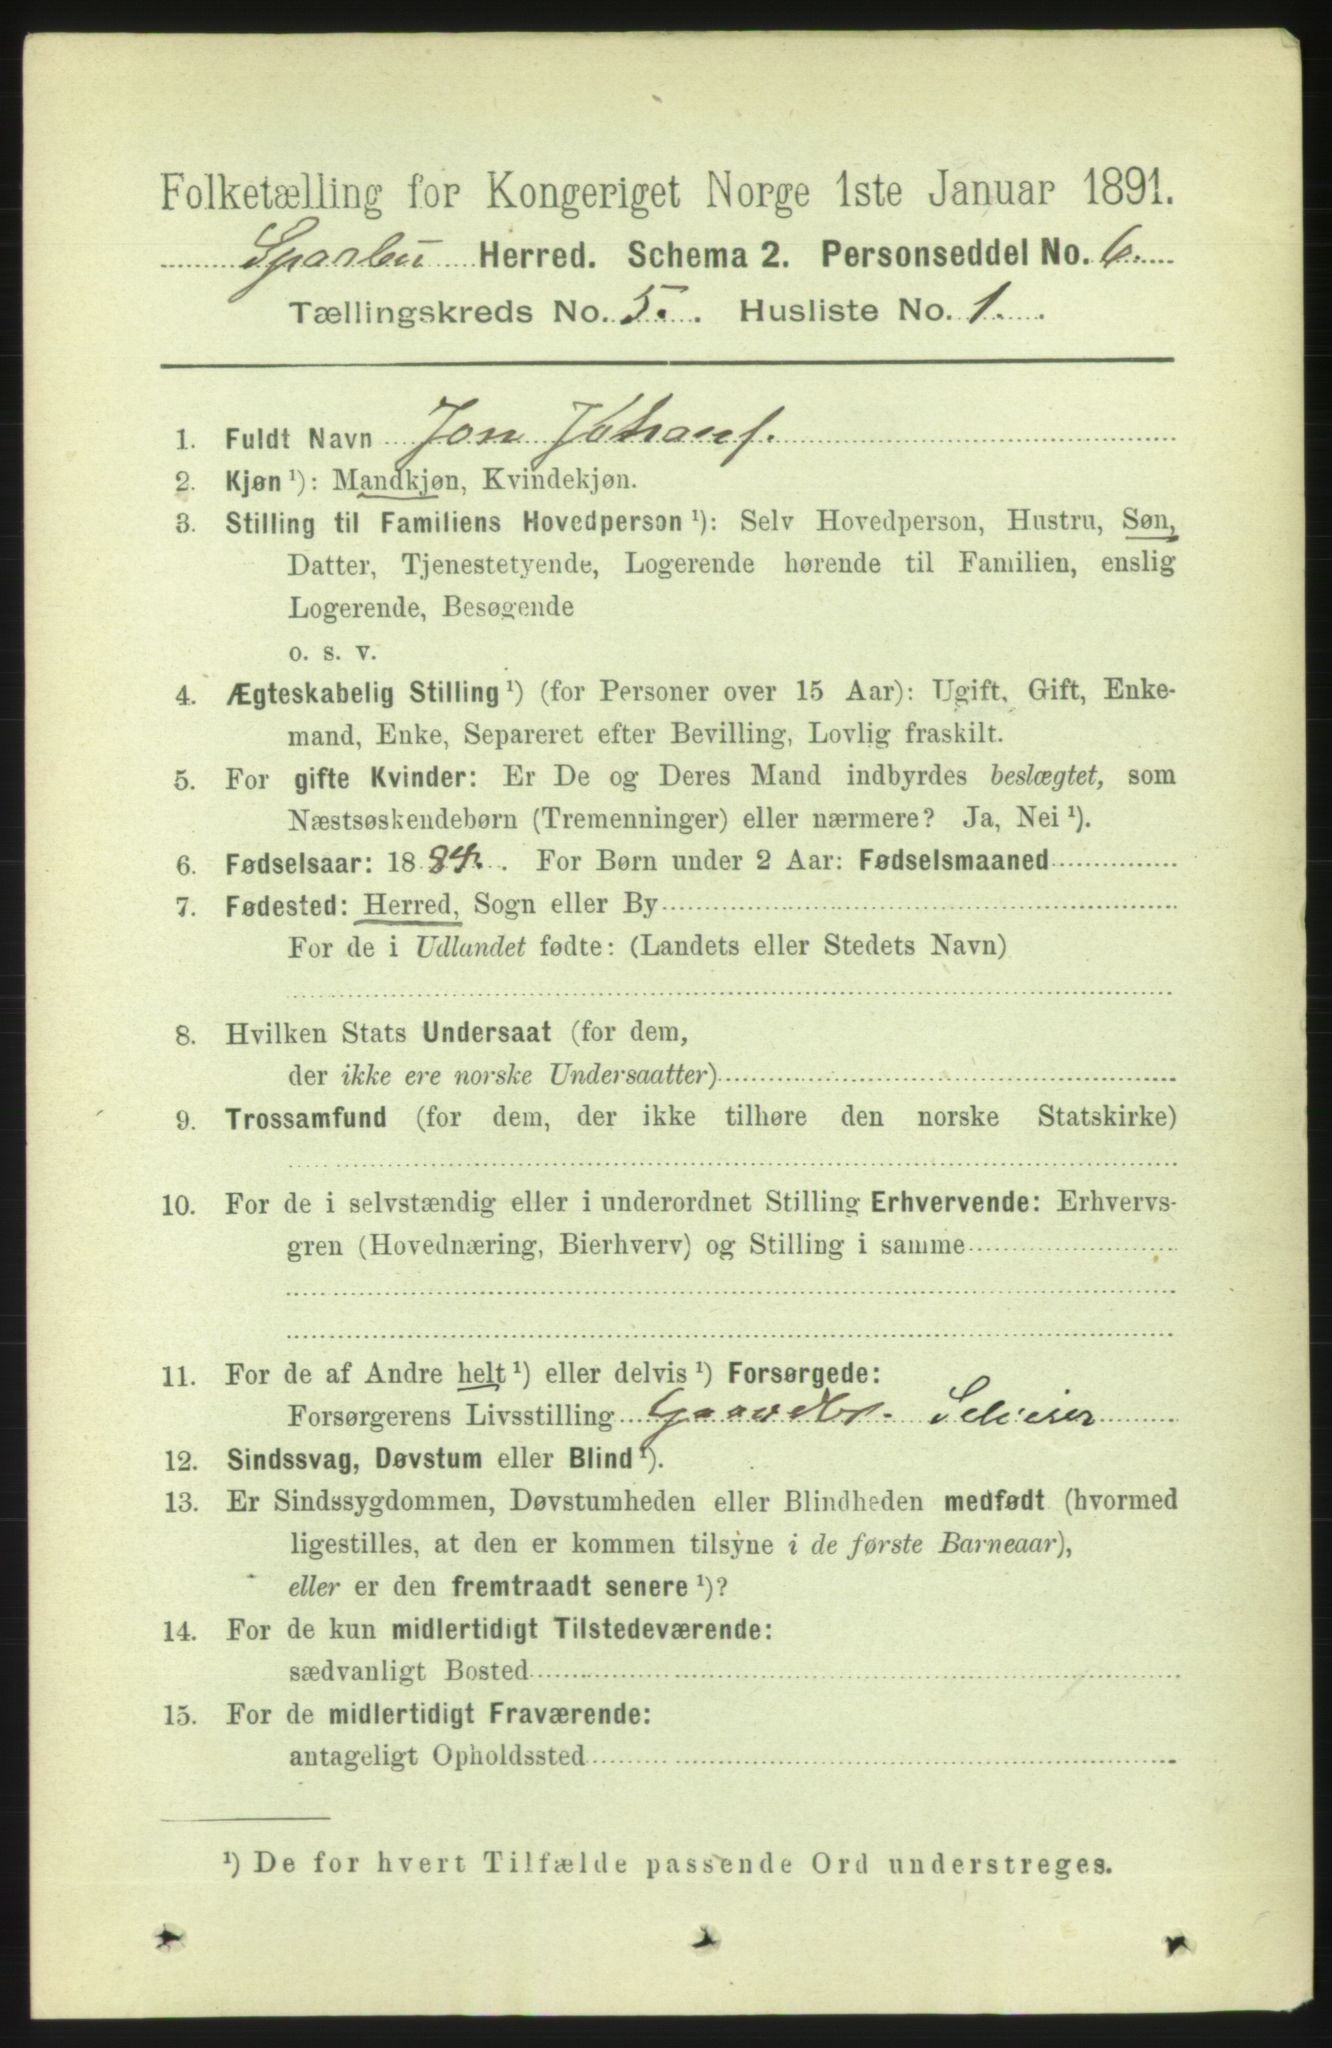 Folketælling for Kongeriget Norge 1ste Januar 1891.
Sparbu Herred. Schema 2. Personseddel No. 6.
Tællingskreds No. 5. Husliste No. 1.
1. Fuldt Navn Jon Johans.
2. Kjøn ¹): Mandkjøn, Kvindekjøn.
3. Stilling til Familiens Hovedperson ¹): Selv Hovedperson, Hustru, Søn,
Datter, Tjenestetyende, Logerende hørende til Familien, enslig
Logerende, Besøgende
o. s. v.
4. Ægteskabelig Stilling ¹) (for Personer over 15 Aar): Ugift, Gift, Enke-
mand, Enke, Separeret efter Bevilling, Lovlig fraskilt.
5. For gifte Kvinder: Er De og Deres Mand indbyrdes beslægtet, som
Næstsøskendebørn (Tremenninger) eller nærmere? Ja, Nei ¹).
6. Fødselsaar: 1884. For Børn under 2 Aar: Fødselsmaaned
7. Fødested: Herred, Sogn eller By
For de i Udlandet fødte: (Landets eller Stedets Navn)
8. Hvilken Stats Undersaat (for dem,
der ikke ere norske Undersaatter)
9. Trossamfund (for dem, der ikke tilhøre den norske Statskirke)
10. For de i selvstændig eller i underordnet Stilling Erhvervende: Erhvervs-
gren (Hovednæring, Bierhverv) og Stilling i samme
11. For de af Andre helt ¹) eller delvis ¹) Forsørgede:
Forsørgerens Livsstilling Gaardbr. Seleier
12. Sindssvag, Døvstum eller Blind ¹).
13. Er Sindssygdommen, Døvstumheden eller Blindheden medfødt (hvormed
ligestilles, at den er kommen tilsyne i de første Barneaar),
eller er den fremtraadt senere ¹)?
14. For de kun midlertidigt Tilstedeværende:
sædvanligt Bosted
15. For de midlertidigt Fraværende:
antageligt Opholdssted
¹) De for hvert Tilfælde passende Ord understreges.